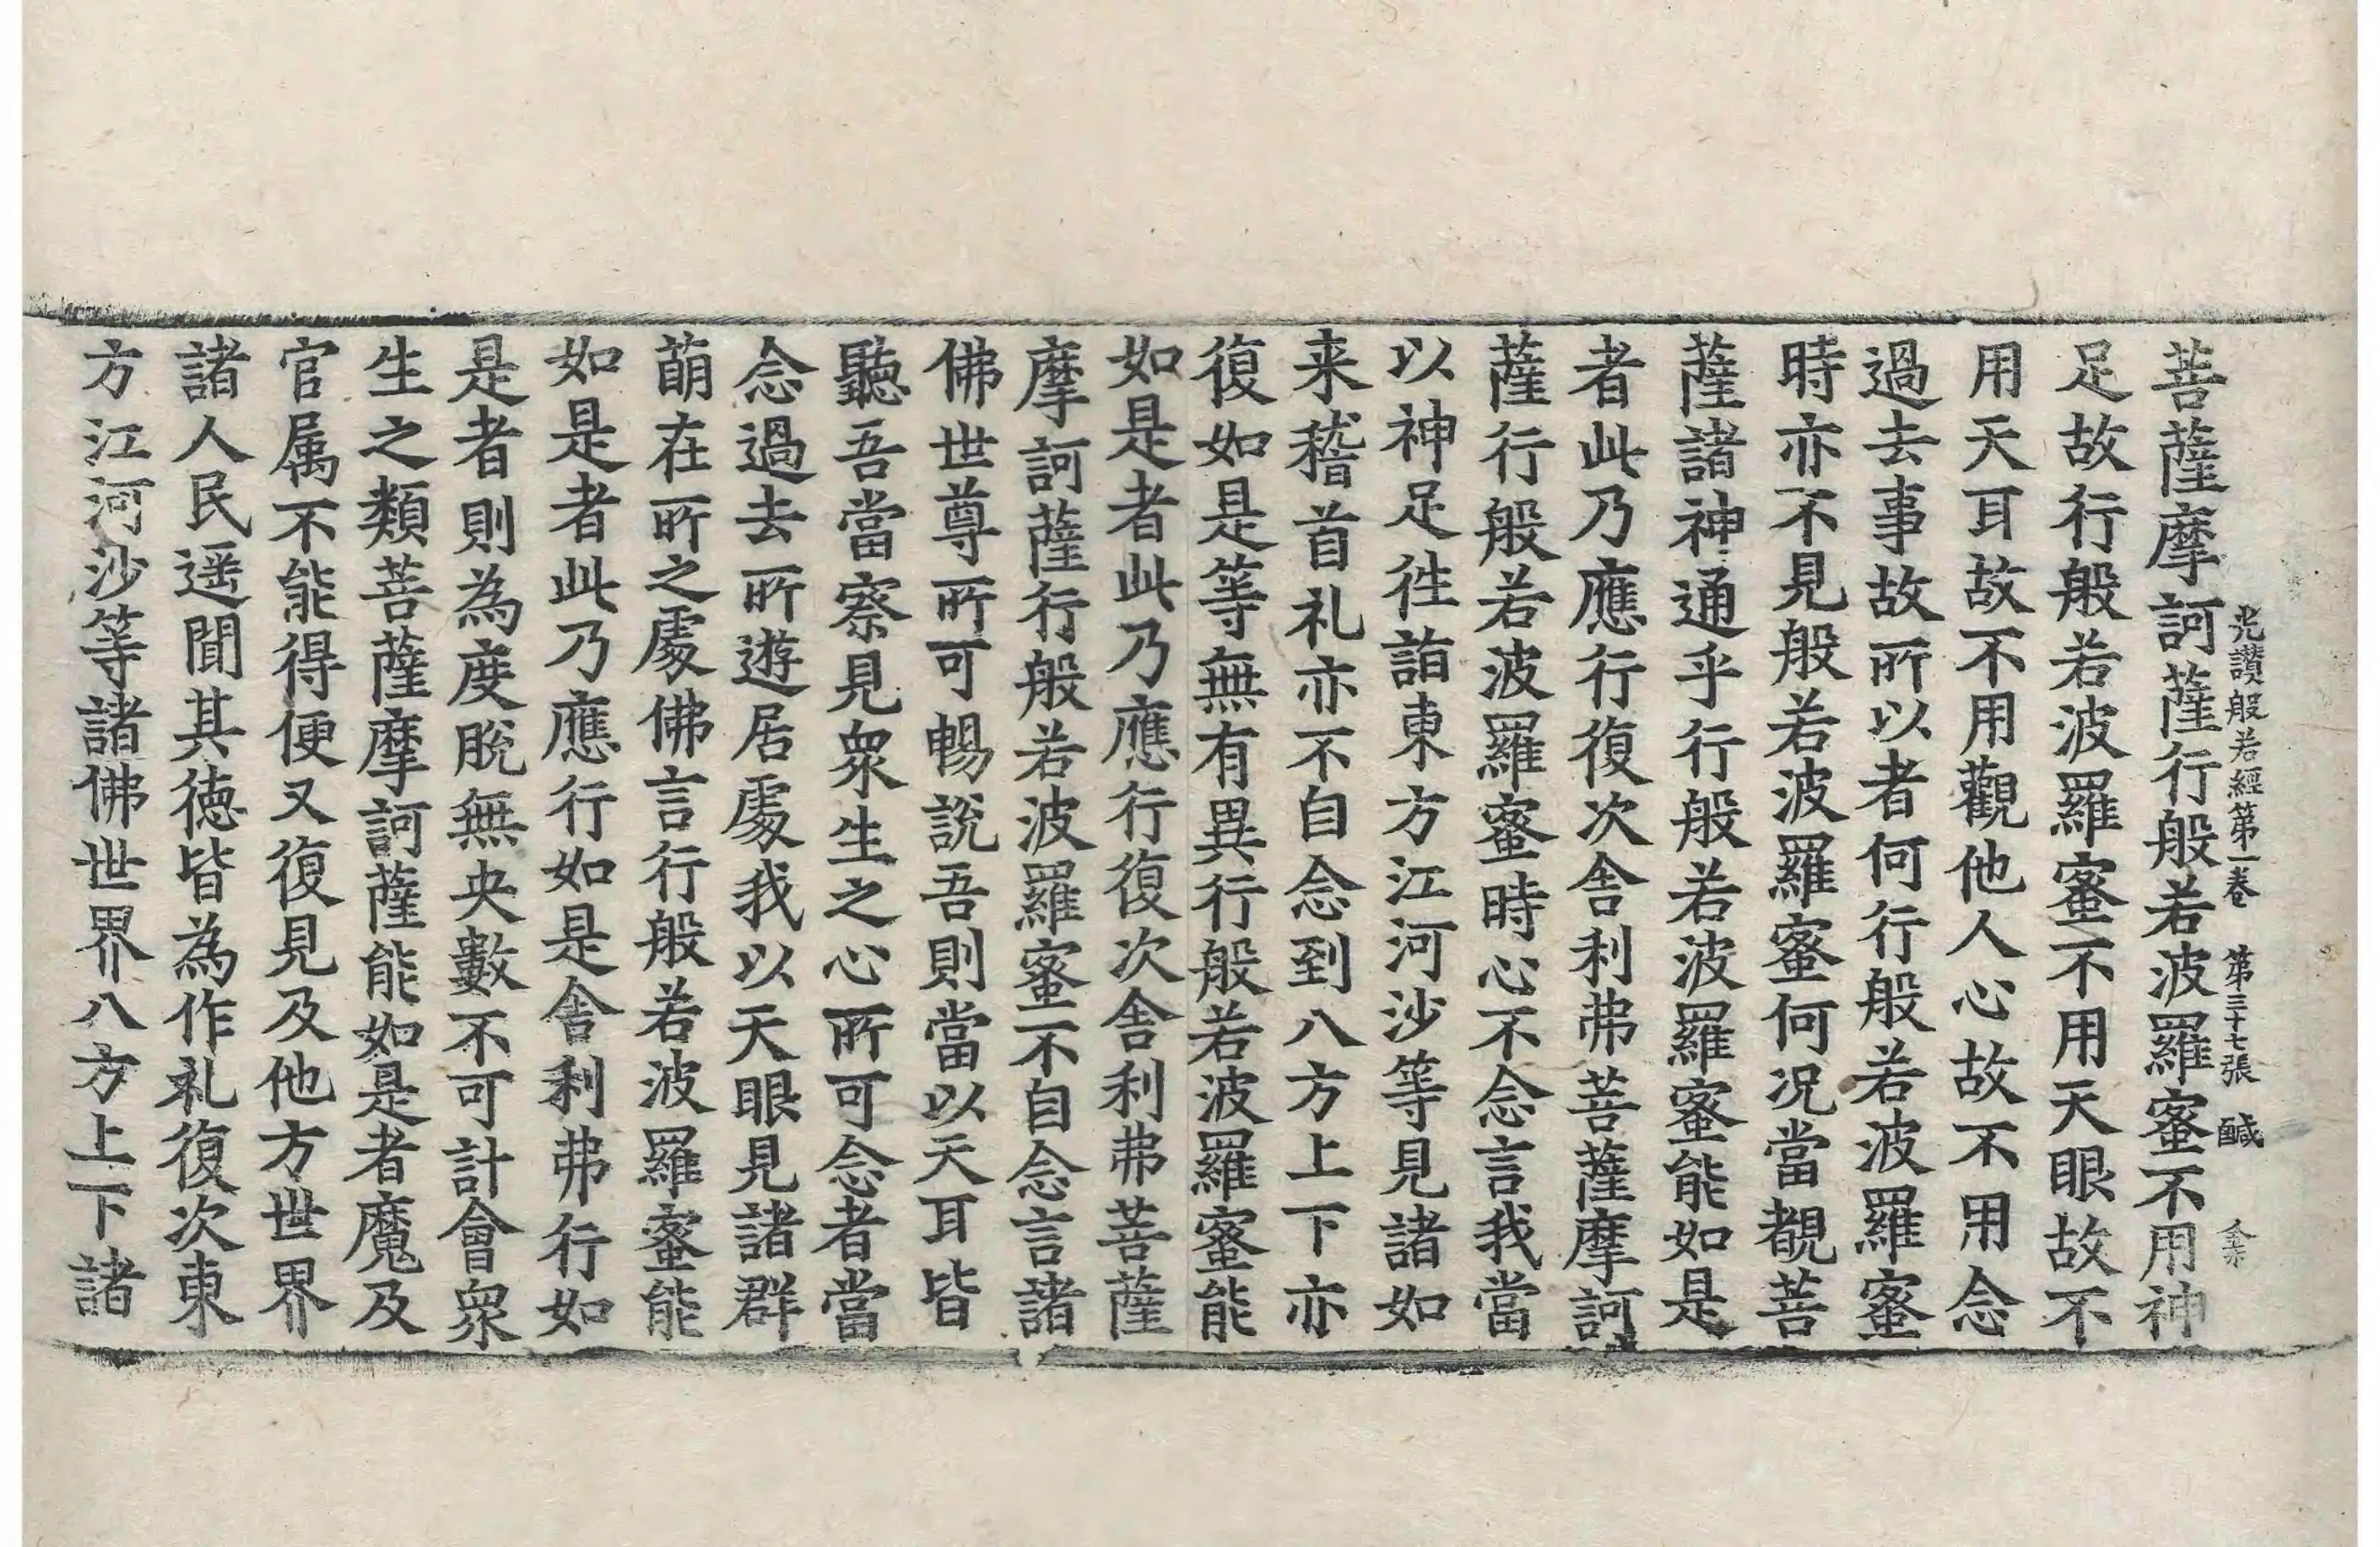 光讃般若經第一卷 第三十七張 鹹
菩薩摩訶薩行般若波羅蜜不用神
足故行般若波羅蜜不用天眼故不
用天耳故不用觀他人心故不用念
過去事故所以者何行般若波羅蜜
時亦不見般若波羅蜜何況當覩菩
薩諸神通乎行般若波羅蜜能如是
者此乃應行復次舍利弗菩薩摩訶
薩行般若波羅蜜時心不念言我當
以神足徃詣東方江河沙等見諸如
来稽首礼亦不自念到八方上下亦
復如是等無有異行般若波羅蜜能
如是者此乃應行復次舍利弗菩薩
摩訶薩行般若波羅蜜不自念言諸
佛世尊所可暢說吾則當以天耳皆
聽吾當察見衆生之心所可念者當
念過去所遊居處我以天眼見諸群
萠在所之處佛言行般若波羅蜜能
如是者此乃應行如是舍利弗行如
是者則為度脫無央數不可計會衆
生之類菩薩摩訶薩能如是者魔及
官属不能得便又復見及他方世界
諸人民遥聞其徳皆為作礼復次東
方江河沙等諸佛世界八方上下諸